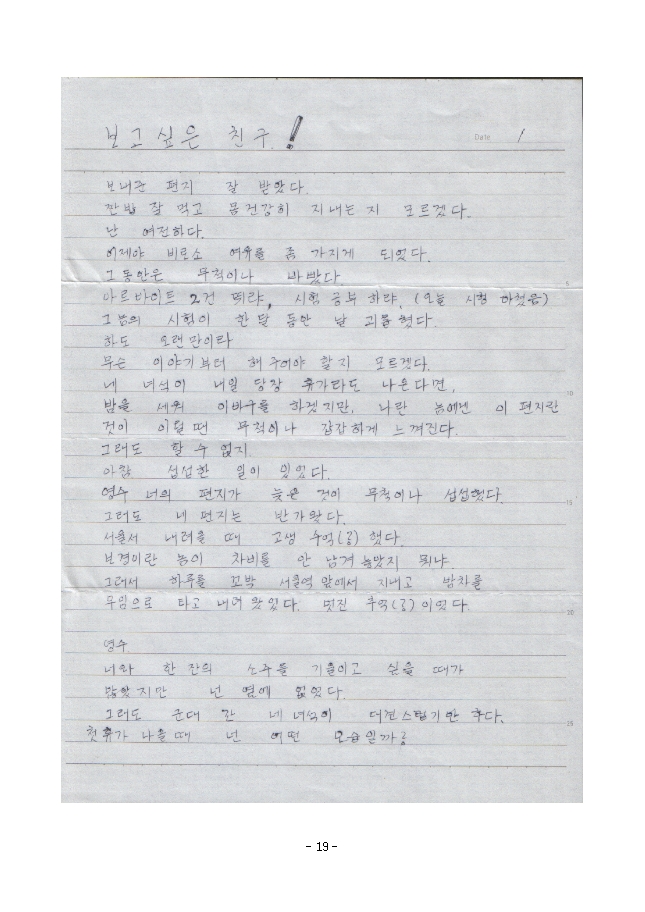 보고싶은 친구!
Date 1
보내준 편지 잘 받았다.
짠밥 잘 먹고 몸건강히 지내는지 모르겠다.
난 여전하다.
이제야 비로소 여유를 좀 가지게 되었다.
그동안은 무척이나 바빴다.
아르바이트 2건 뛰랴, 시험 공부 하랴, (오늘 시험 마쳤음)
그놈의 시험이 한달 동안 날 괴롭혔다.
하도 오랜만이라
무슨 이야기부터 해 주어야 할지 모르겠다.
네 녀석이 내일 당장 휴가라도 나온다면,
밤을 세워 이바구를 하겠지만, 나란 놈에겐 이 편지란
것이 이럴 땐 무척이나 갑갑하게 느껴진다.
그래도 할 수 없지
아참 섭섭한 일이 있었다.
영수 너의 편지가 늦은 것이 무척이나 섭섭했다.
그래도 네 편지는 반가왔다.
서울서 내려올 때 고생 추억(?) 했다.
보경이란 놈이 차비를 안 남겨 놓았지 뭐냐
그래서 하루를 꼬박 서울역 앞에서 지내고 밤차를
무임으로 타고 내려왔었다. 멋진 추억(?)이었다
영수
너와 한 잔의 소주를 기울이고 싶을 때가
많았지만 넌 옆에 없었다.
그래도 군대 간 네 녀석이 대견스럽기만 하다.
첫휴가 나올때 넌 어떤 모습일까?
5
10
15
20
25
- 19 -